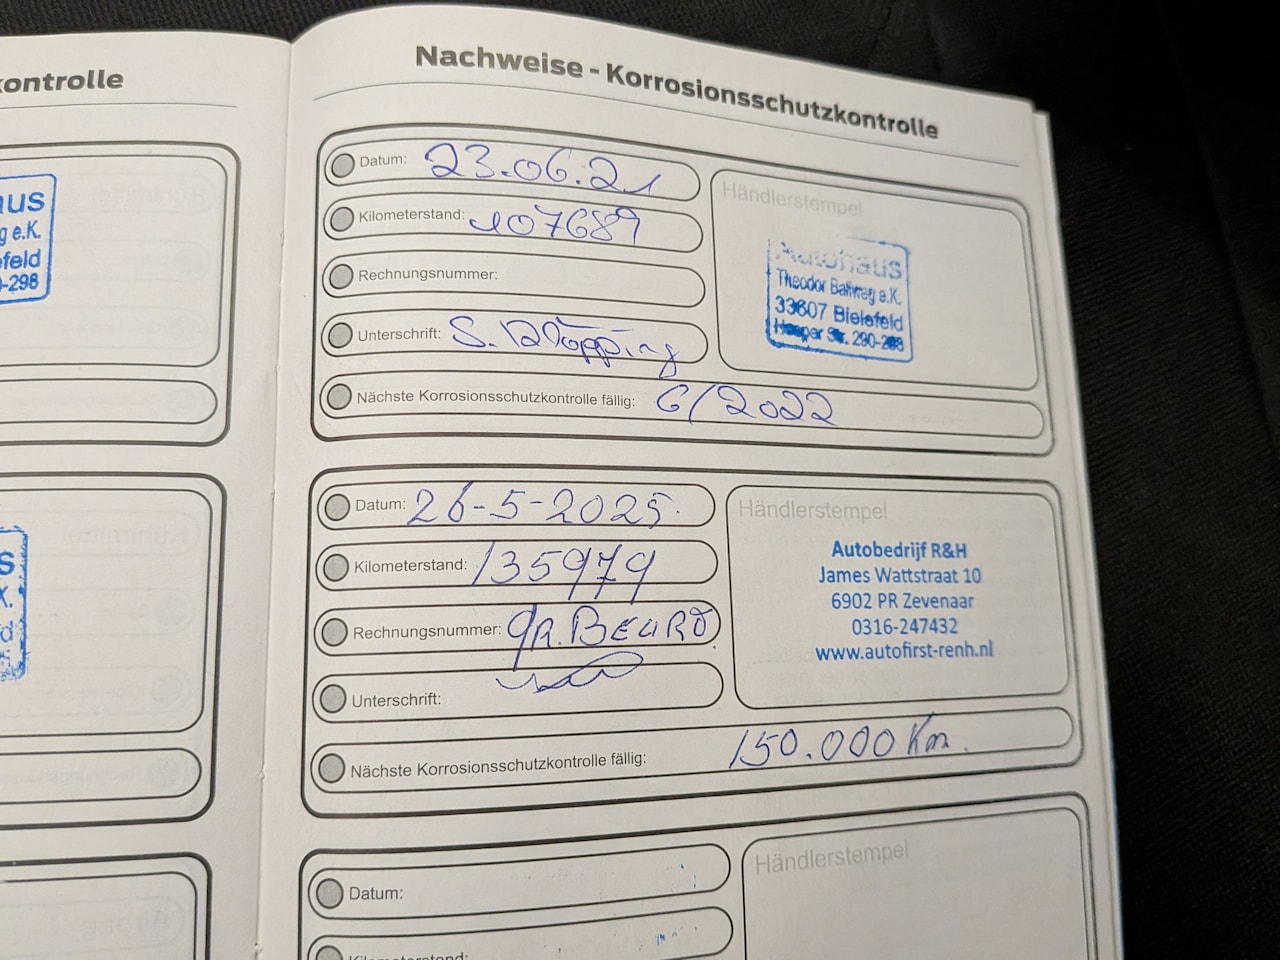 kontrolle
aus
g e.K.
efeld
-298
s
K.
d
Nachweise - Korrosionsschutzkontrolle
Datum: 23.06.21
Kilometerstand: 107689
Rechnungsnummer:
Unterschrift: S.
Nächste Korrosionsschutzkontrolle fällig: 6/2022
Händlerstempel
Autohaus
Theodor Ballweg e.K.
33607 Bielefeld
Heeper Str. 290-298
Datum: 26-5-2025.
Kilometerstand: 135979
Rechnungsnummer:
Unterschrift:
Nächste Korrosionsschutzkontrolle fällig: 150.000 Km.
Händlerstempel
Autobedrijf R&H
James Wattstraat 10
6902 PR Zevenaar
0316-247432
www.autofirst-renh.nl
Datum:
Kilometerstand:
Händlerstempel